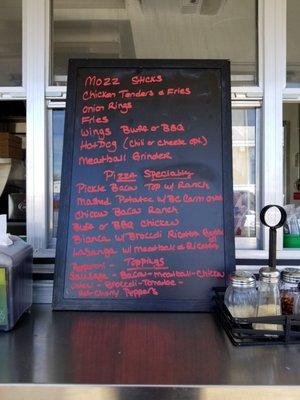 Mozz Sticks
Chicken Tenders & Fries
Onion Rings
Fries
Wings Buff or BBQ
Hot Dog (Chili or cheese opt)
Meatball Grinder
Pizza Specialty
Pickle Bacon Top w/ Ranch
Mashed Potatoe w/ BC Parm
Chicken Bacon Ranch
Buff or BBQ Chicken
Bianca w/ Broccoli Ricotta
Lasagna w/ Meatball & Ricotta
Pepperoni - Toppings
Sausage - Bacon - Meatball - Chicken
Onion - Broccoli - Tomatoe -
Hot Cherry Peppers